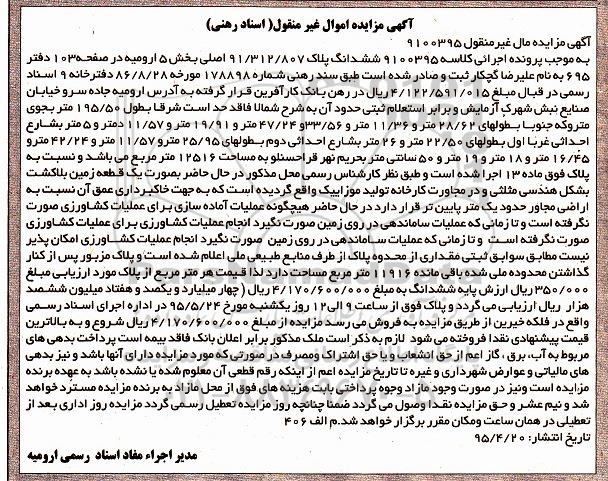 آگهی مزایده اموال غیر منقول( اسناد رهنی)
آگهی مزایده مال غیر منقول ۹۱۰۰۳۹۵
به موجب پرونده اجرائی کلاسه ۹۱۰۰۳۹۵ ششدانگ پلاک ۹۱/۳۱۲/۸۰۷ اصلی بخش ۵ ارومیه در صفحه ۱۰۳ دفتر
۶۹۵ به نام علیرضا گچکار ثبت و صادر شده است طبق سند رهنی شماره ۱۷۸۸۹۸ مورخه ۸۶/۸/۲۸ دفترخانه ۹ اسناد
رسمی در قبال مبلغ ۴/۱۲۲/۵۹۱/۰۱۵ ریال در رهن بانک کارآفرین قرار گرفته به آدرس ارومیه جاده سرو خیابان
صنایع نبش شهرک آزمایش و برابر استعلام ثبتی حدود آن به شرح شمالا فاقد حد است شرقا بطول ۱۹۵/۵۰ متر بجوی
متروکه جنوبا بطولهای ۲۸/۶۲ متر و ۱۱/۳۶ متر و ۳۳/۵۶ و ۴۷/۲۴ متر و ۱۹/۹۱ متر و ۱۱/۵۷ دمتر و ۵ متر بشارع
احداثی غربا اول بطولهای ۲۲/۵۰ متر و ۲۶ متر بشارع احداثی دوم بطولهای ۲۵/۹۵ متر و ۱۱/۵۷ متر و ۴۲/۲۴ متر و
۱۶/۴۵ متر و ۱۸ متر و ۱۹ متر و ۵۰ سانتی متر بحریم نهر قراحسنلو به مساحت ۱۲۵۱۶ متر مربع می باشد و نسبت به
پلاک فوق ماده ۱۳ اجرا شده است و طبق نظر کارشناس رسمی محل مذکور در حال حاضر بصورت یک قطعه زمین بلاکشت
بشکل هندسی مثلثی و در مجاورت کارخانه تولید موزاییک واقع گردیده است که به جهت خاکبرداری عمق آن نسبت به
اراضی مجاور حدود یک متر پایین تر قرار دارد در حال حاضر هیچگونه عملیات آماده سازی برای عملیات کشاورزی صورت
نگرفته است و تا زمانی که عملیات ساماندهی در روی زمین صورت نگیرد انجام عملیات کشاورزی برای عملیات کشاورزی
صورت نگرفته است و تا زمانی که عملیات ساماندهی در روی زمین صورت نگیرد انجام عملیات کشاورزی امکان پذیر
نیست مطابق سوابق ثبتی مقداری از محدوده پلاک از طرف منابع طبیعی ملی اعلام شده است و پلاک مزبور پس از کنار
گذاشتن محدوده ملی شده باقی مانده ۱۱۹۱۶ متر مربع مساحت دارد لذا قیمت هر متر مربع از پلاک مورد ارزیابی مبلغ
۳۵۰/۰۰۰ ریال ارزش پایه ششدانگ به مبلغ ۴/۱۷۰/۶۰۰/۰۰۰ ریال ( چهار میلیارد و یکصد و هفتاد میلیون ششصد
هزار ریال ارزیابی می گردد و پلاک فوق از ساعت ۹ الی ۱۲ روز یکشنبه مورخ ۹۵/۵/۲۴ در اداره اجرای اسناد رسمی
واقع در فلکه خیرین از طریق مزایده به فروش می رسد مزایده از مبلغ ۴/۱۷۰/۶۰۰/۰۰۰ ریال شروع و به بالاترین
قیمت پیشنهادی نقدا فروخته می شود لازم به ذکر است ملک مذکور برابر اعلان بانک فاقد بیمه است پرداخت بدهی های
مربوط به آب، برق، گاز اعم از حق انشعاب و یا حق اشتراک و مصرف در صورتی که مورد مزایده دارای آنها باشد و نیز بدهی
های مالیاتی و عوارض شهرداری و غیره تا تاریخ مزایده اعم از اینکه رقم قطعی آن معلوم شده یا نشده باشد به عهده برنده
مزایده است ونیز در صورت وجود مازاد وجوه پرداختی بابت هزینه های فوق از محل مازاد به برنده مزایده مسترد خواهد
شد و نیم عشر و حق مزایده نقدا وصول می گردد ضمنا چنانچه روز مزایده تعطیل رسمی گردد مزایده روز اداری بعد از
تعطیلی در همان ساعت ومکان مقرر برگزار خواهد شد.م الف ۴۰۶
تاریخ انتشار: ۹۵/۴/۲۰
مدیر اجراء مفاد اسناد رسمی ارومیه